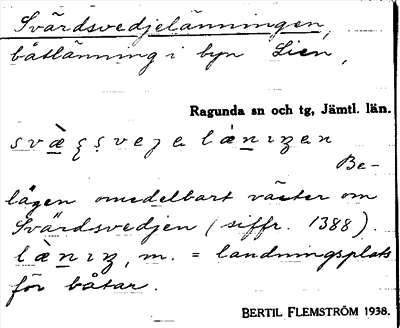 Svärdsvedjelänningen,
båtlänning i byn Lien,
Ragunda sn och tg, Jämtl. län.
Be-
lägen omedelbart väster om
Svärdsvedjen (siffr. 1388).
m. = landningsplats
för båtar.
BERTIL FLEMSTRÖM 1938.